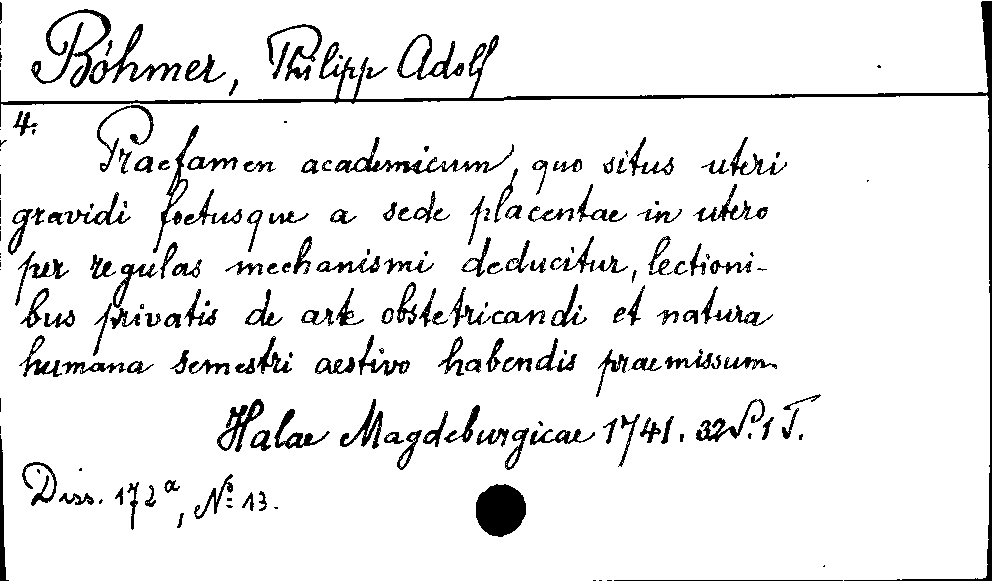 Böhmer, Philipp Adolf
4.
Praefamen academicum, quo situs uteri
gravidi foetusque a sede placentae in utero
per regulas mechanismi deducitur, lectioni-
bus privatis de arte obstetricandi et natura
humana semestri aestivo habendis praemissum.
Halae Magdeburgicae 1741. 32 S. 1 T.
Diss. 172a, No 13.